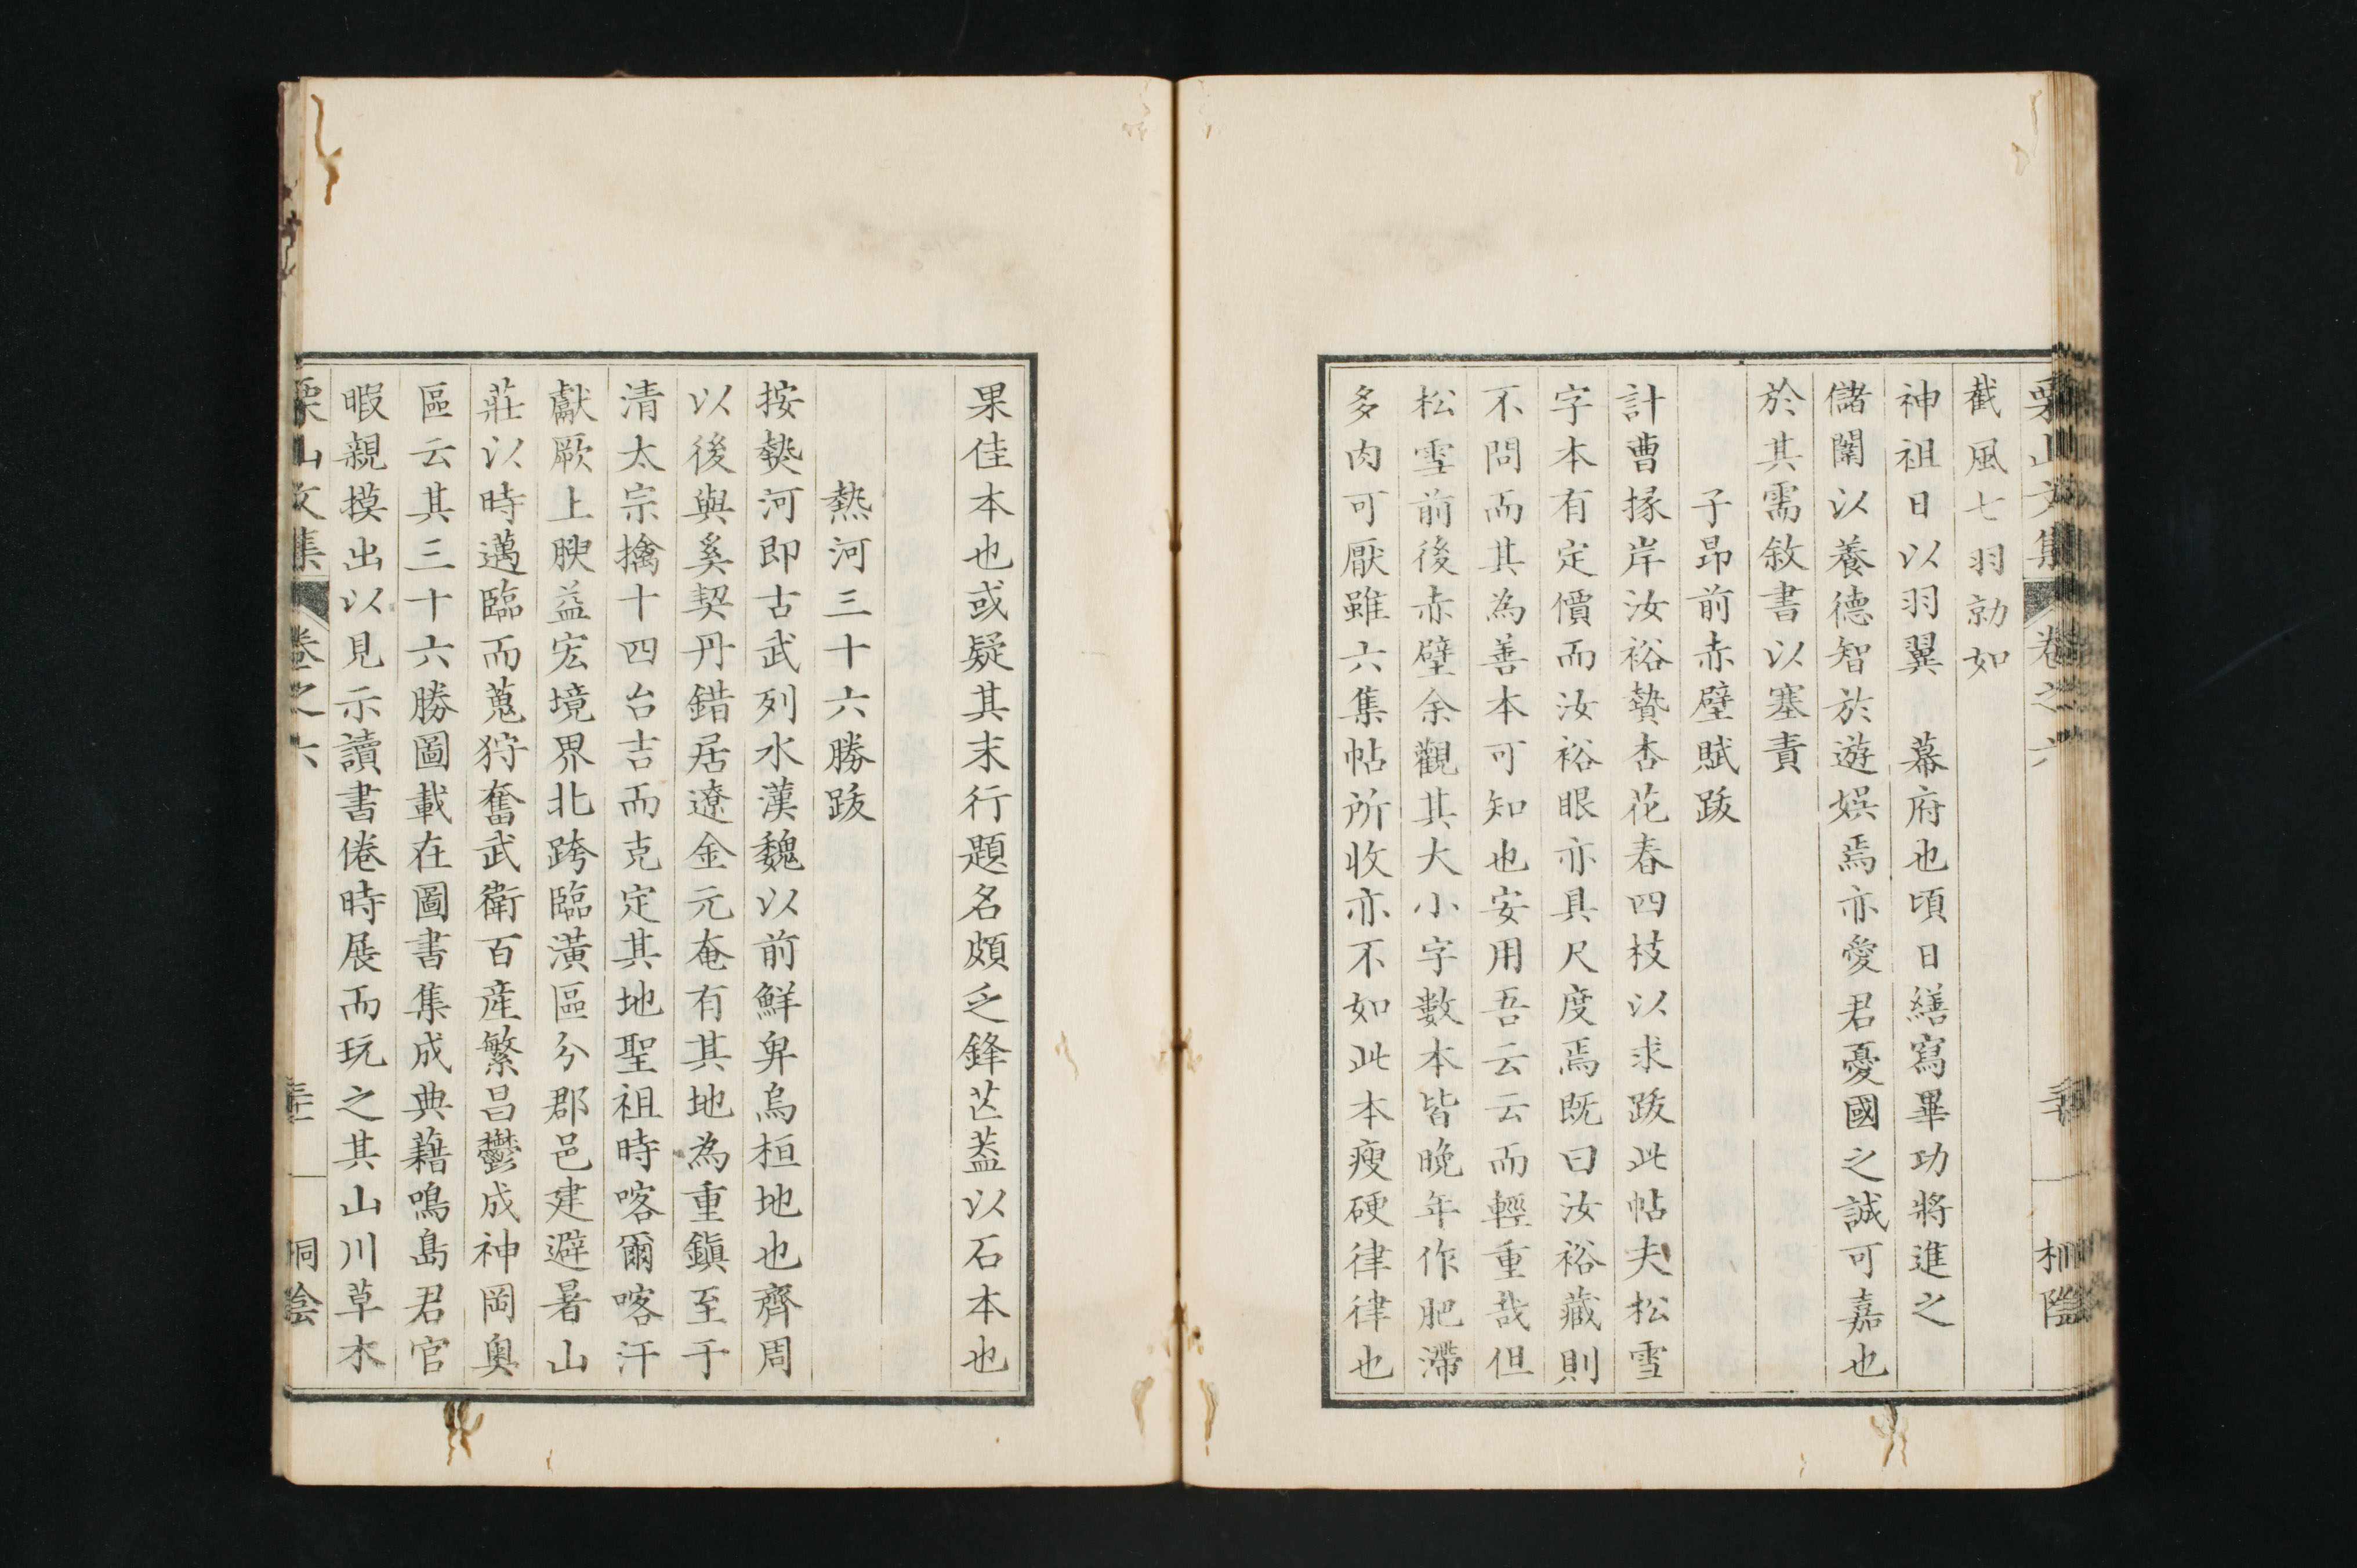 栗山文集 卷之六 桐陰
截風七羽勍如
神祖日以羽翼 幕府也頃日繕寫畢功將進之
儲闈以養德智於遊娯焉亦愛君憂國之誠可嘉也
於其需敘書以塞責
子昂前赤壁賦跋
計曹掾岸汝裕贄杏花春四枝以求跋此帖夫松雪
字本有定價而汝裕眼亦具尺度焉既曰汝裕藏則
不問而其為善本可知也安用吾云云而輕重哉但
松雪前後赤壁余觀其大小字數本皆晚年作肥滯
多肉可厭雖六集帖所收亦不如此本瘦硬律律也
果佳本也或疑其末行題名頗乏鋒芒葢以石本也
熱河三十六勝跋
按熱河即古武列水漢魏以前鮮卑烏桓地也齊周
以後與奚契丹錯居遼金元奄有其地為重鎭至于
清太宗擒十四台吉而克定其地聖祖時喀爾喀汗
獻厥上腴益宏境界北跨臨潢區分郡邑建避暑山
莊以時邁臨而蒐狩奮武衛百産繁昌鬱成神岡奥
區云其三十六勝圖載在圖書集成典藉鳴島君官
暇親摸出以見示讀書倦時展而玩之其山川草木
栗山文集 卷之六 桐陰